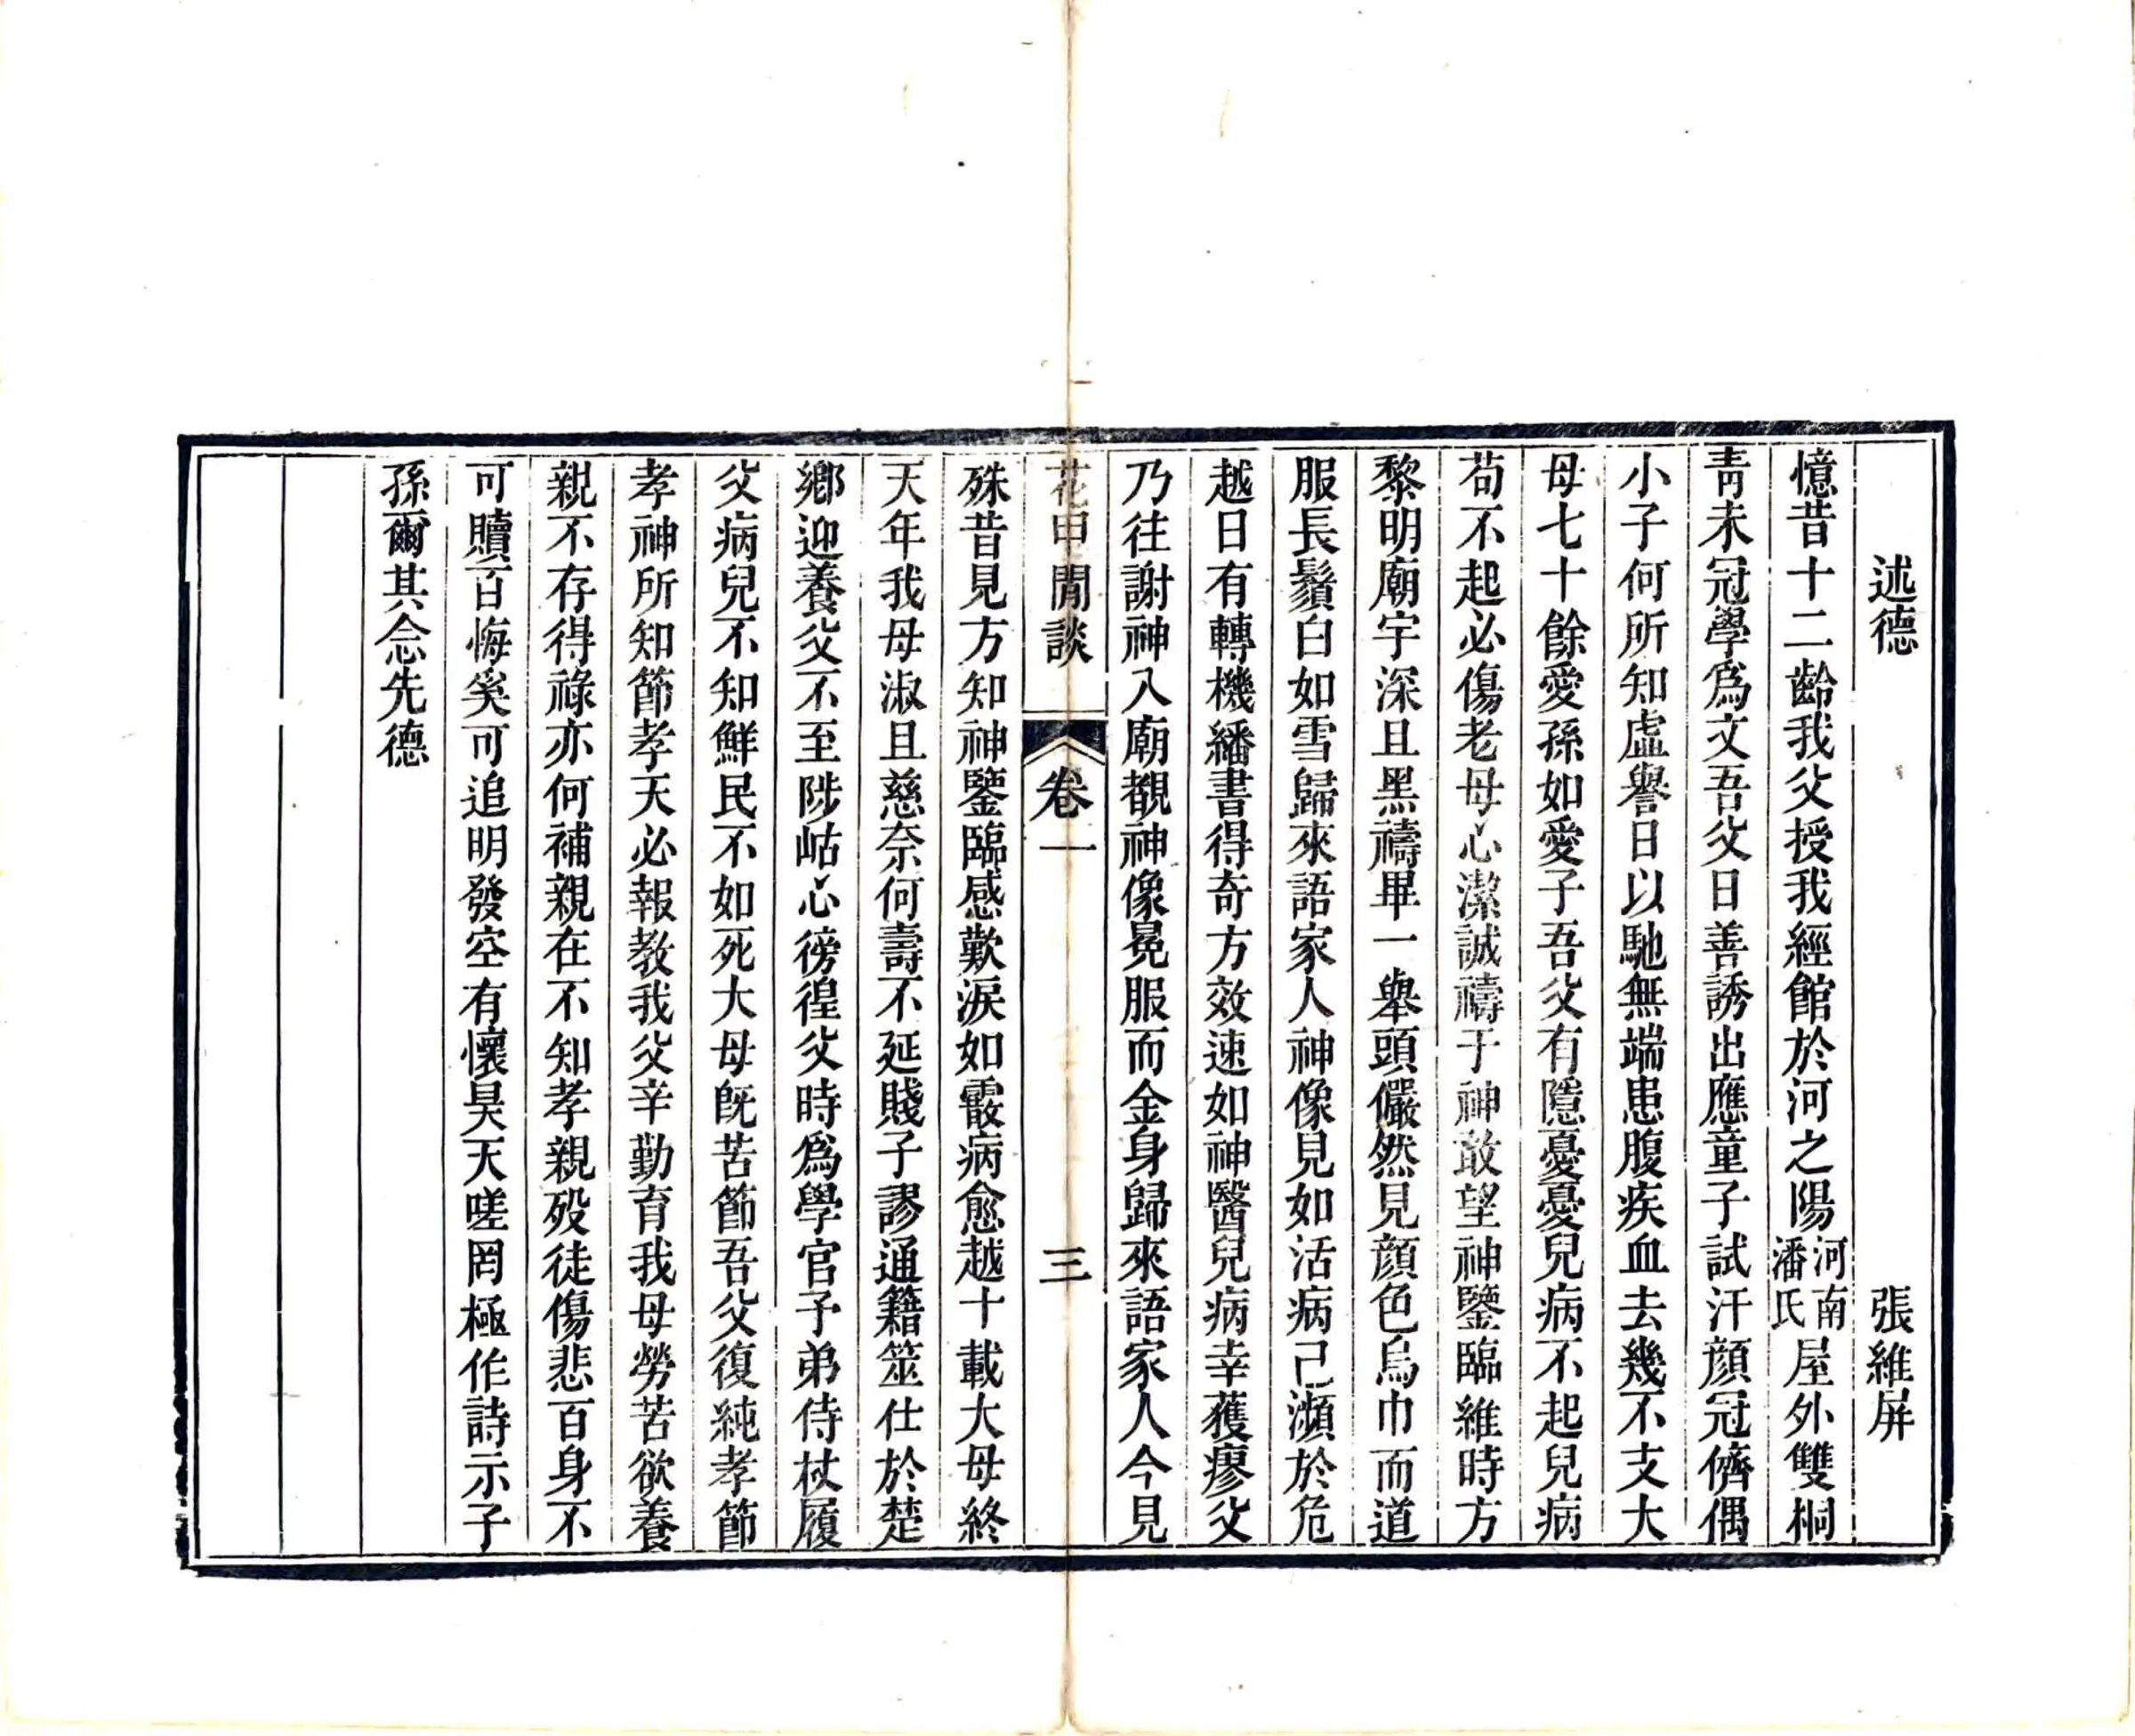 述德 張維屏
憶昔十二齡我父授我經館於河之陽河南潘氏屋外雙桐
青未冠學爲文吾父日善誘出應童子試汗顏冠儕偶
小子何所知虛譽日以馳無端患腹疾血去幾不支大
母七十餘愛孫如愛子吾父有隱憂憂兒病不起兒病
苟不起必傷老母心潔誠禱于神敢望神鑒臨維時方
黎明廟宇深且黑禱畢一舉頭儼然見顏色烏巾而道
服長鬚白如雪歸來語家人神像見如活病己瀕於危
越日有轉機繙書得奇方效速如神醫兒病幸獲瘳父
乃往謝神入廟覩神像冕服而金身歸來語家人今見
花甲閒談 卷一 三
殊昔見方知神鑒臨感歎淚如霰病愈越十載大母終
天年我母淑且慈奈何壽不延賤子謬通籍筮仕於楚
鄉迎養父不至陟岵心徬徨父時爲學官予弟侍杖履
父病兒不知鮮民不如死大母旣苦節吾父復純孝節
孝神所知節孝天必報教我父辛勤育我母勞苦欲養
親不存得祿亦何補親在不知孝親歿徒傷悲百身不
可贖百悔奚可追明發空有懷昊天嗟罔極作詩示子
孫爾其念先德